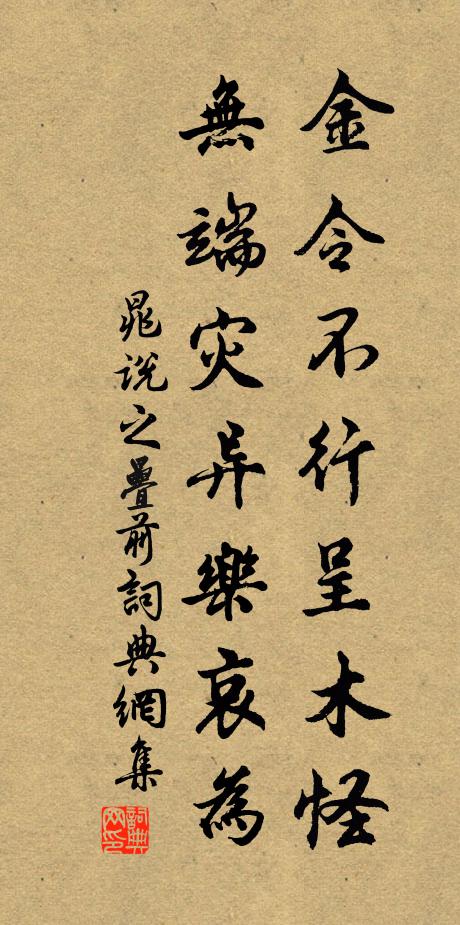 金令不行呈木怪
無端灾异樂哀為
晁說之疊前詞典網集
詞典网印